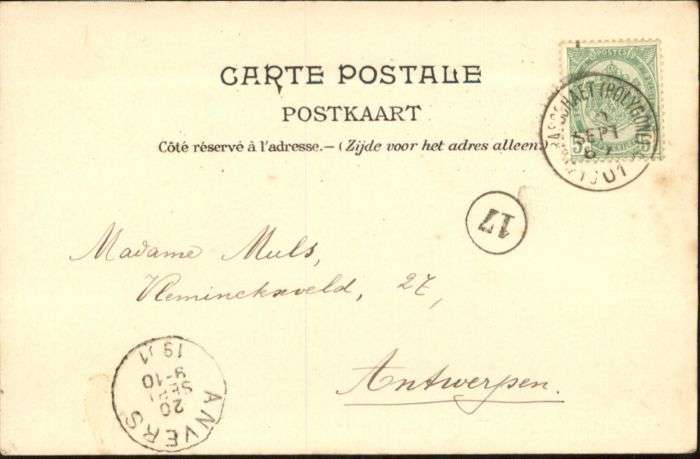 CARTE POSTALE
POSTKAART
Côté réservé à l'adresse.—(Zijde voor het adres alleen.)
POSTES
BRASSCHAET (POLYGONE)
SEPT
1901
17
Madame Muls,
Vleminckxveld, 27,
Antwerpen.
ANVERS
20
SEPT
9-10
1901